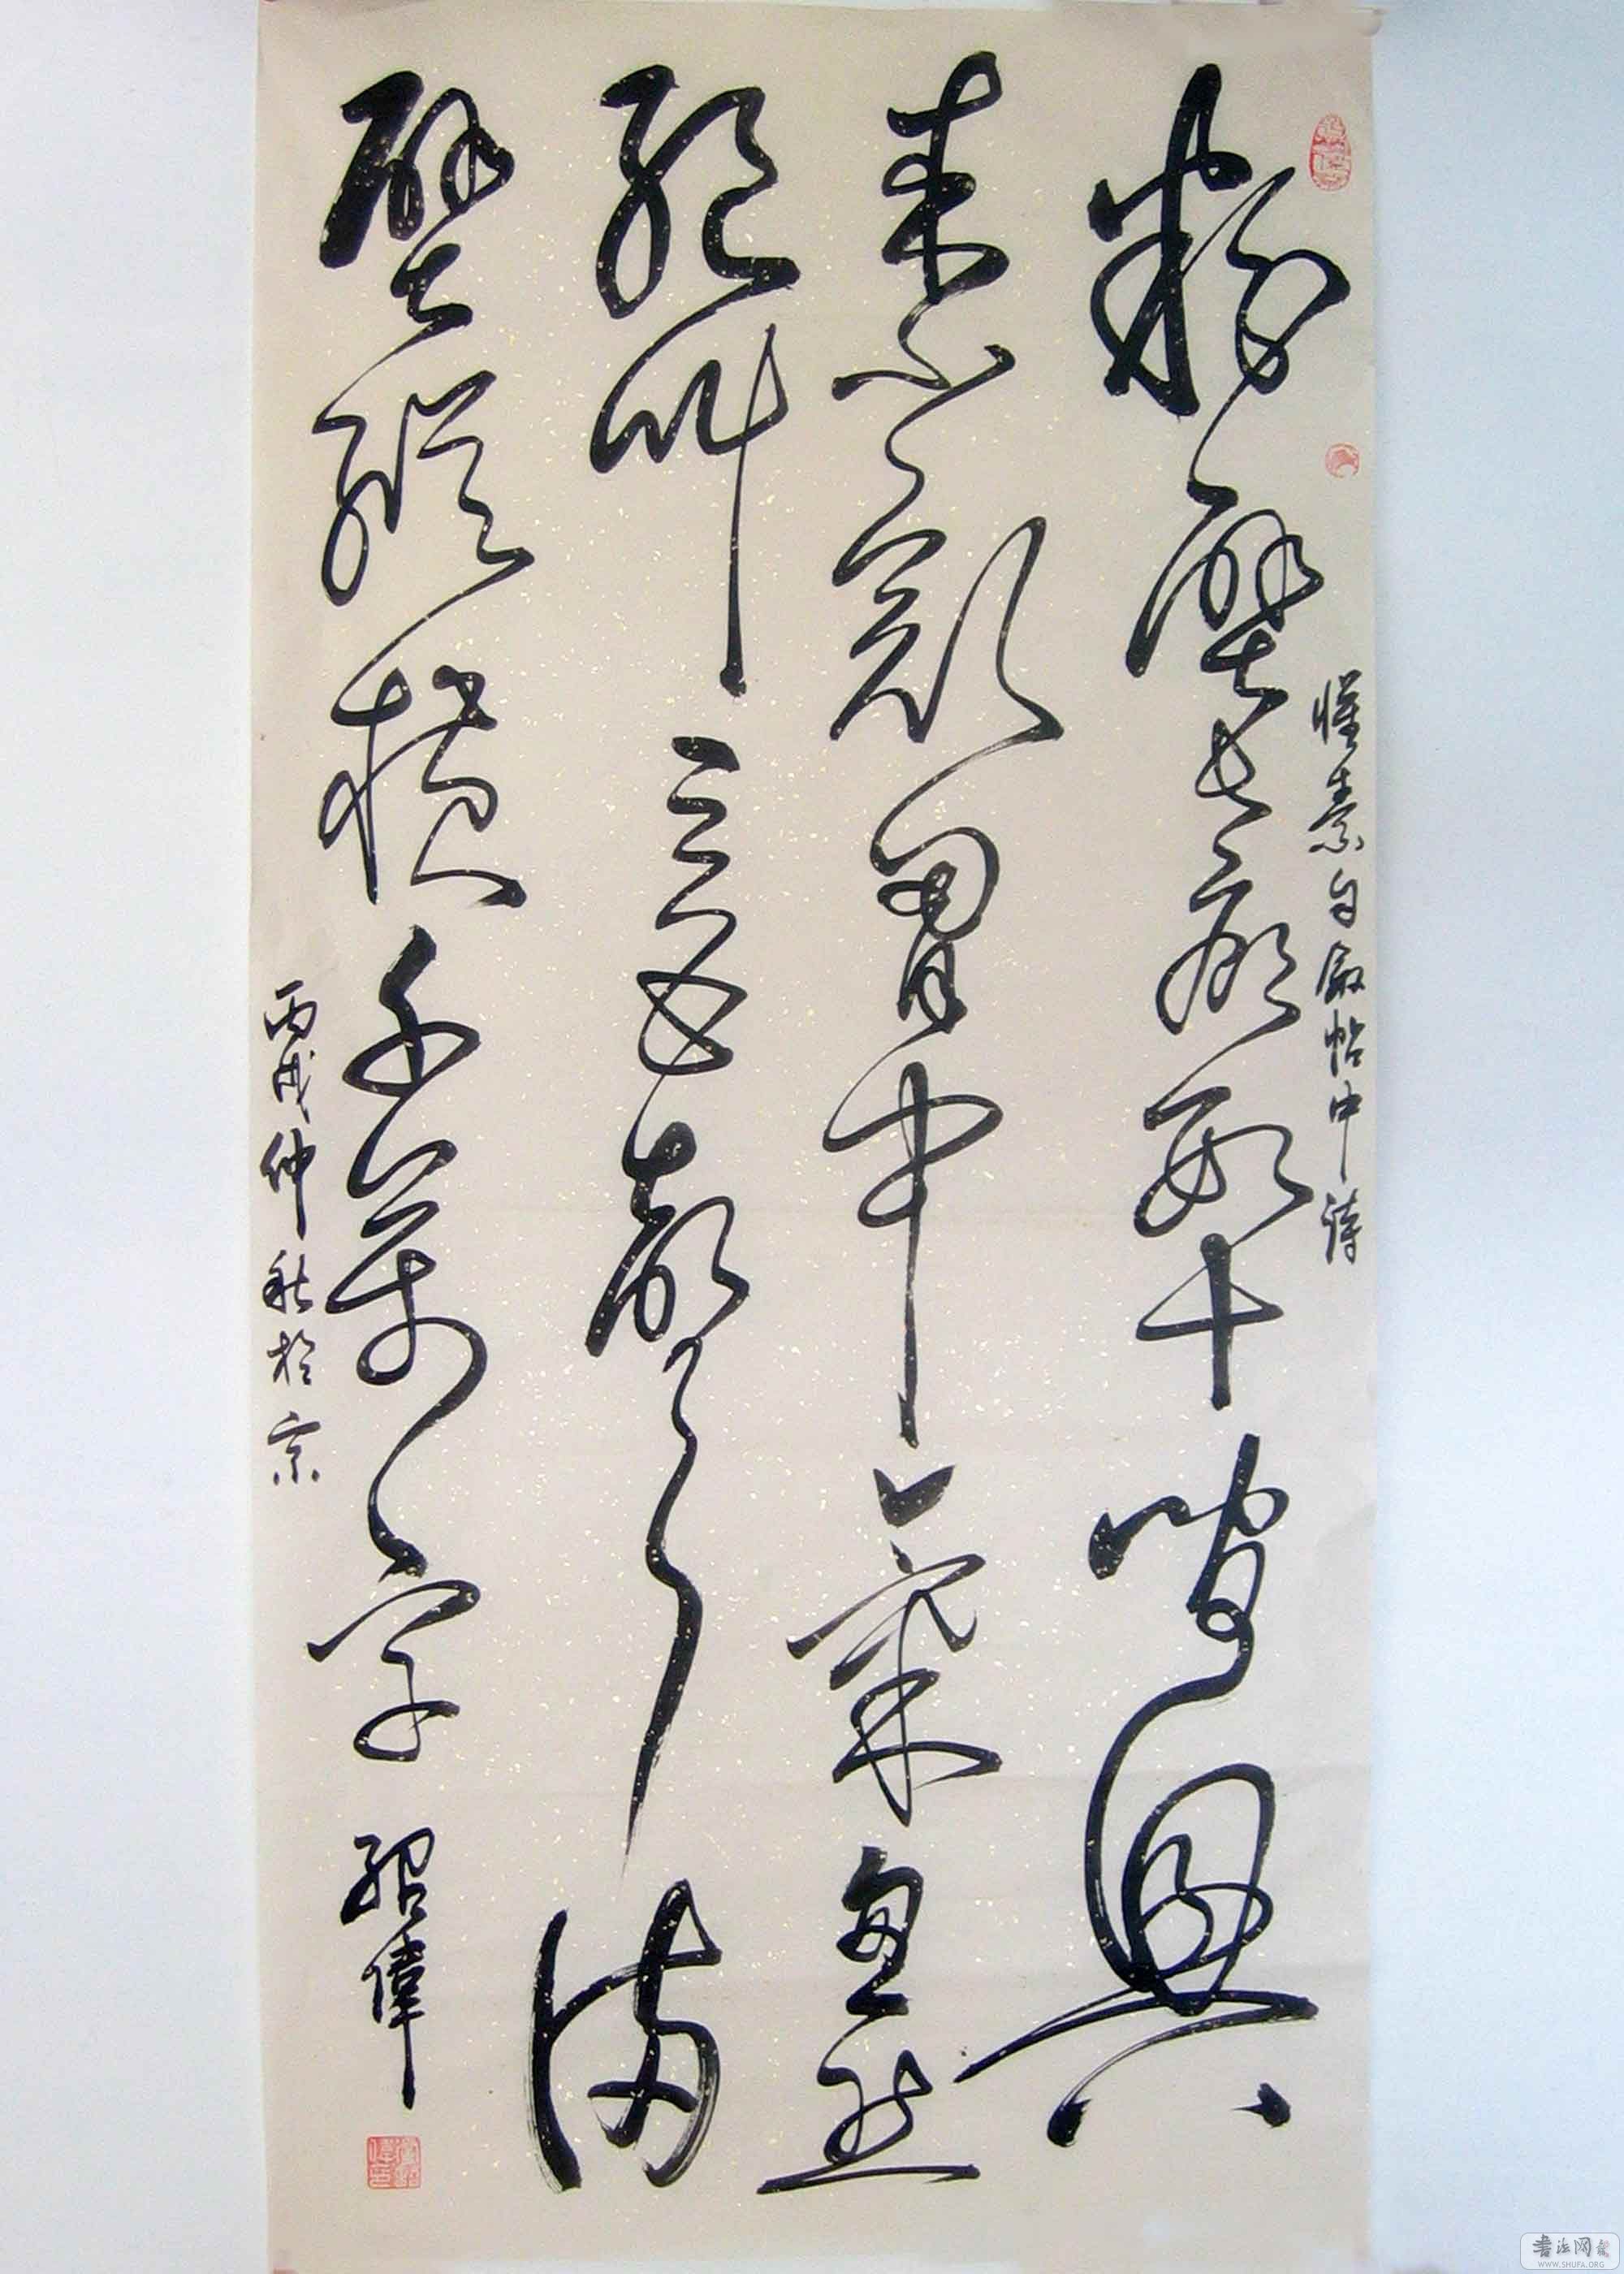 懷素自敘帖中詩
粉壁長廊數十間興
来小豁胷中氣忽然
絕叫三五聲滿
壁縱橫千萬字 紹偉
丙戌仲秋於京
WWW.SHUFA.ORG